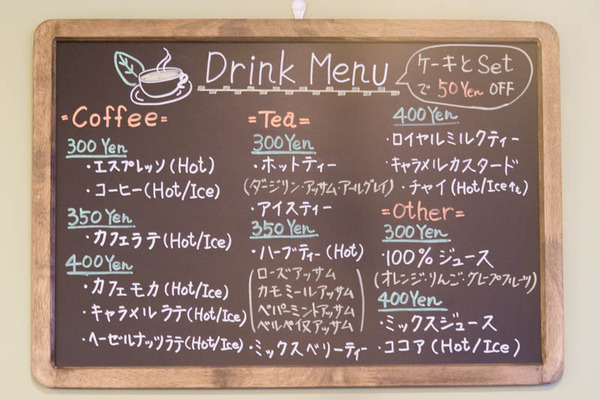 Drink Menu
ケーキとSet
で 50Yen OFF
=Coffee=
300Yen
・エスプレッソ(Hot)
・コーヒー(Hot/Ice)
350Yen
・カフェラテ(Hot/Ice)
400Yen
・カフェモカ(Hot/Ice)
・キャラメルラテ(Hot/Ice)
・ヘーゼルナッツラテ(Hot/Ice)
=Tea=
300Yen
・ホットティー
(・ダージリン・アッサム・アールグレイ)
・アイスティー
350Yen
・ハーブティー(Hot)
ローズアッサム
カモミールアッサム
ペパーミントアッサム
アッサム
・ミックスベリーティー
400Yen
・ロイヤルミルクティー
・キャラメルカスタード
・チャイ(Hot/Ice)
=Other=
300Yen
・100%ジュース
(オレンジ・りんご・グレープフルーツ)
400Yen
・ミックスジュース
・ココア(Hot/Ice)